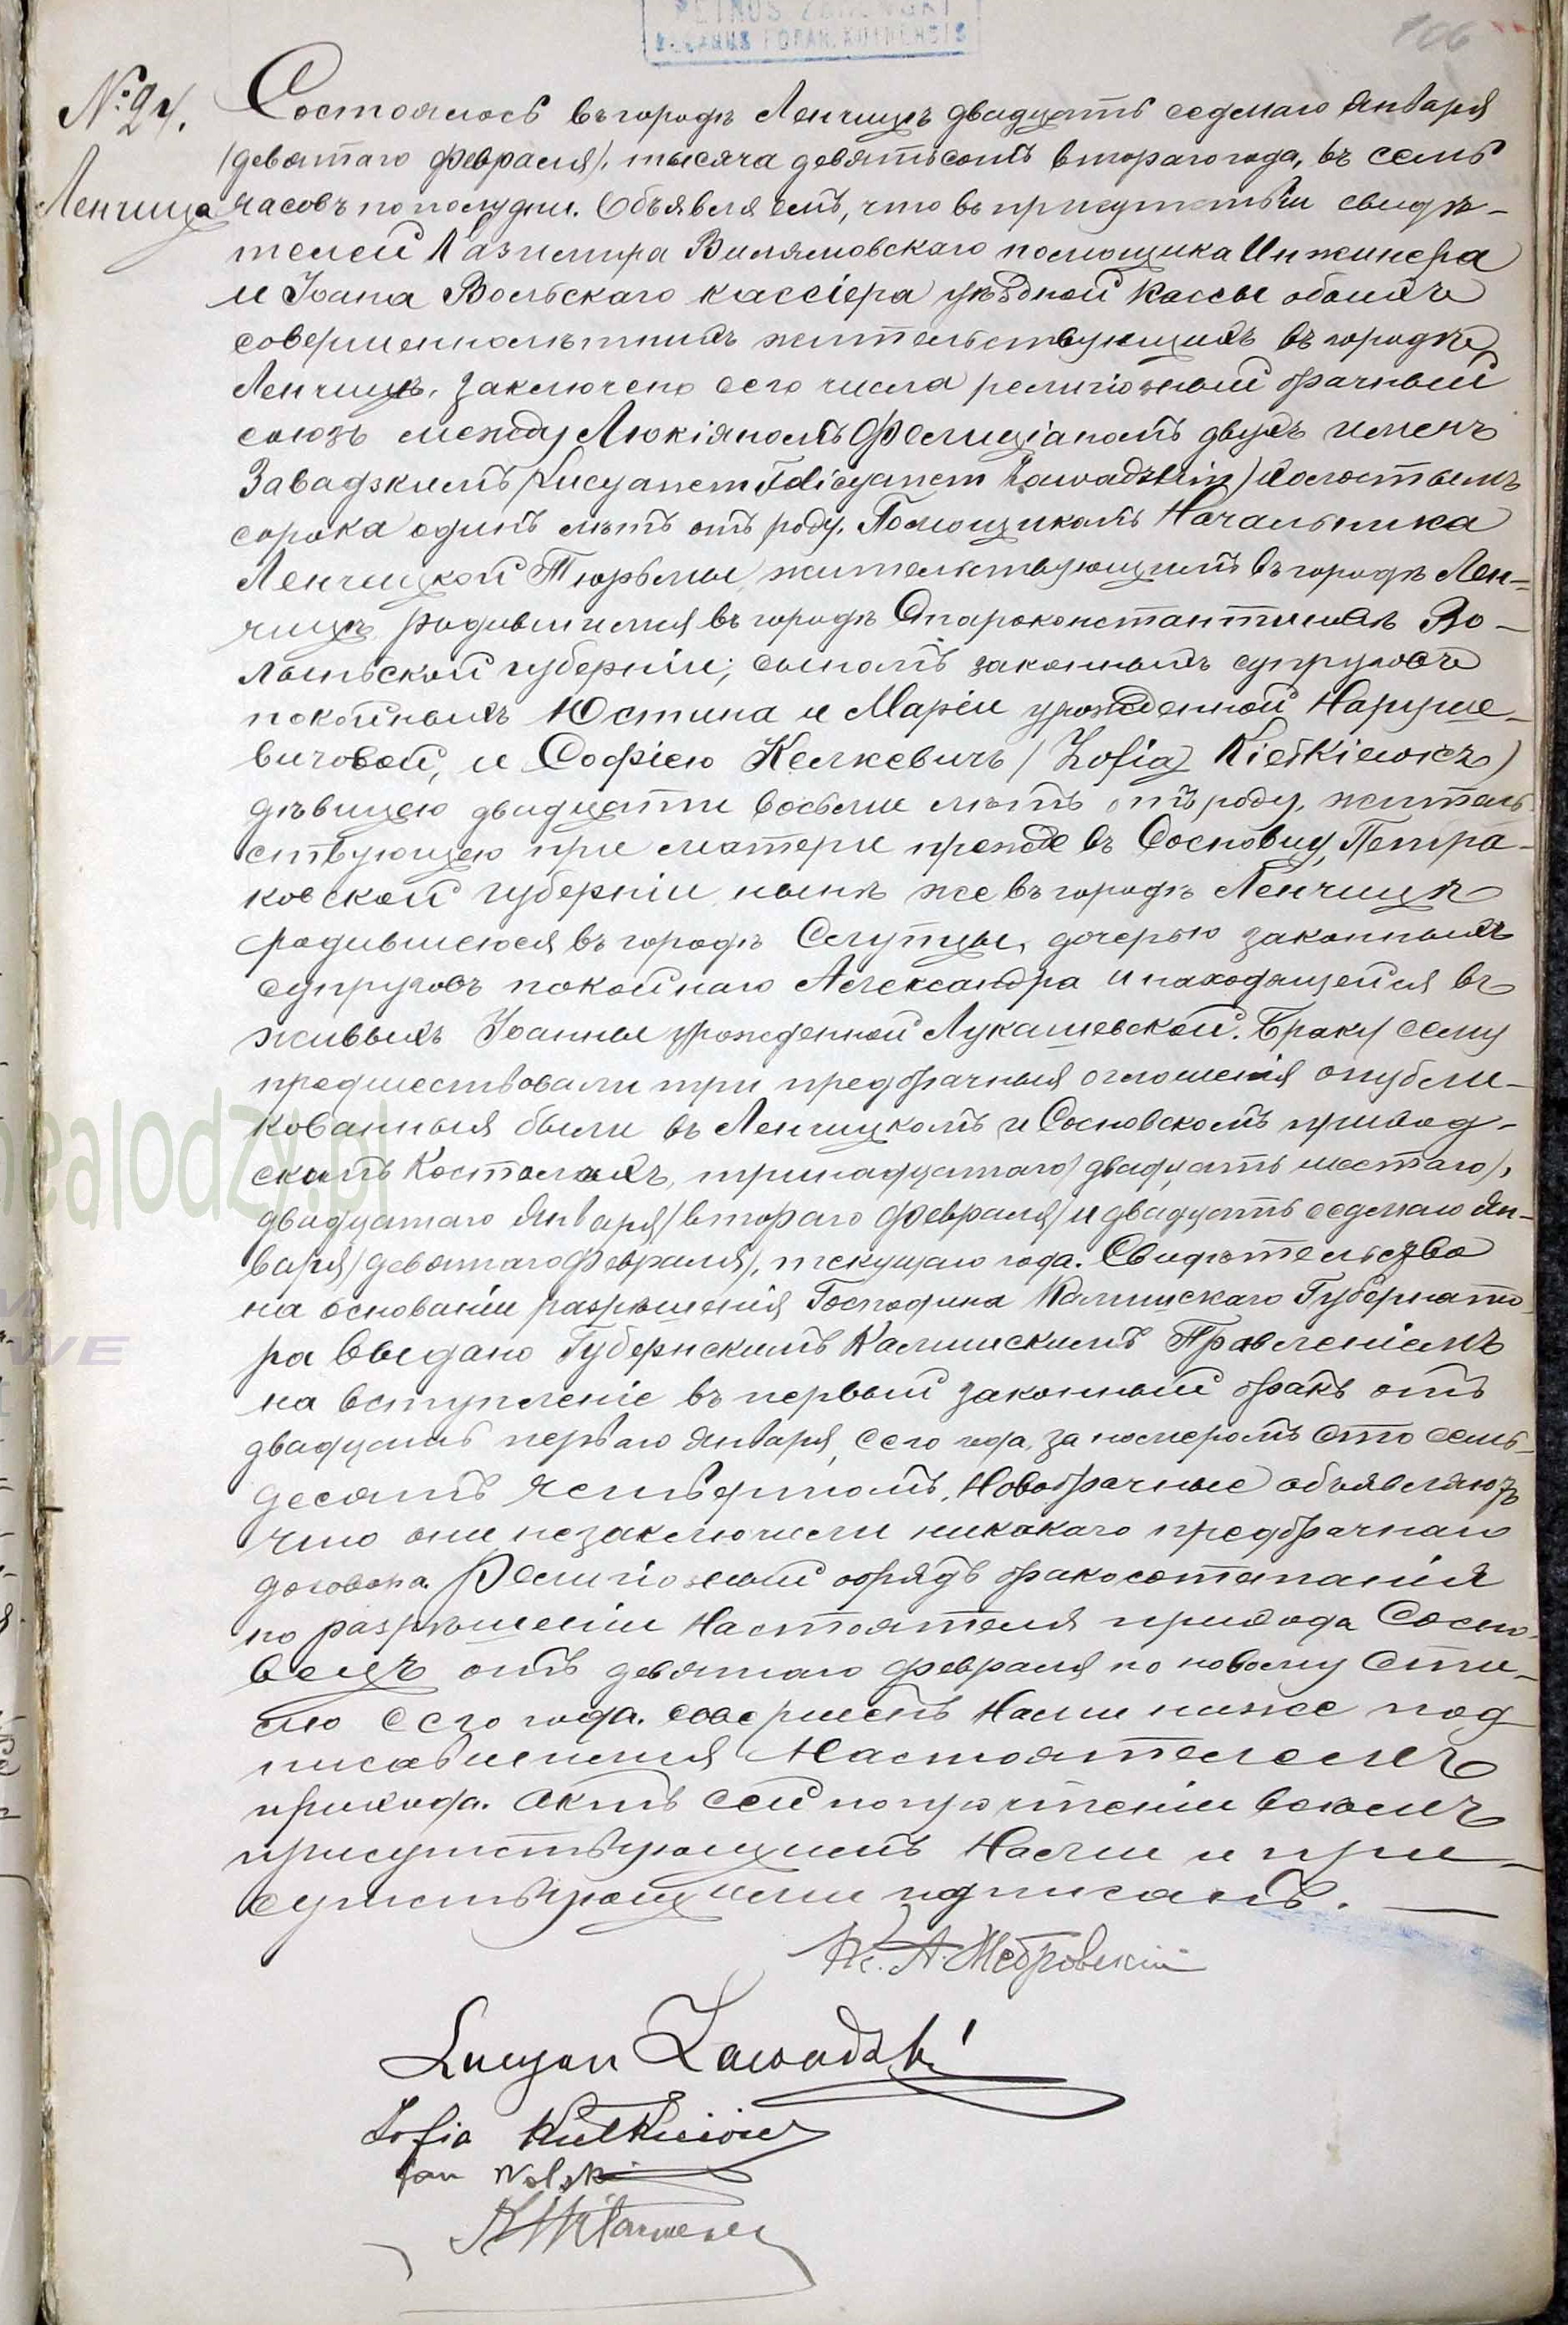 106
№ 24.
Ленчица
Состоялось въ городѣ Ленчицѣ двадцать седмаго Января
(девятаго февраля), тысяча девятьсотъ втораго года, въ семь
часовъ по полудни. Объявляемъ, что въ присутствіи свидѣ-
телей Казимира Вилямовскаго помощика Инжинера
и Іоана Вольскаго кассіера уѣздной Кассы обоихъ
совершеннолѣтнихъ жительствующихъ въ городѣ
Ленчицѣ, заключено сего числа религіозный брачный
союзъ между Люкіяномъ Фелиціаномъ двухъ именъ
Завадзкимъ (Lucyanem Felicyanem Zawadzkim) холостымъ
сорока одинъ лѣтъ отъ роду, Помощикомъ Начальника
Ленчицкой Тюрьмы, жительствующимъ въ городѣ Лен-
чицѣ родившимся въ городѣ Староконстантиновѣ Во-
лынской губерніи, сыномъ законныхъ супруговъ
покойныхъ Юстина и Маріи урожденной Наруше-
вичовой, и Софіею Келкевичъ (Zofią Kiełkiewicz)
дѣвицею двадцати восьми лѣтъ отъ роду, житель-
ствующею при матери прежде въ Сосновцу, Петро-
ковской губерніи нынѣ же въ городѣ Ленчицѣ
родившеюся въ городѣ Слупцы, дочерью законныхъ
супруговъ покойнаго Александра и находящейся въ
живыхъ Іоанны урожденной Лукашевской. Браку сему
предшествовали три предбрачныя оглошенія опубли-
кованныя были въ Ленчицкомъ и Сосновскомъ приход-
скихъ Костелахъ, тринадцатаго (двадцать шестаго),
двадцатаго Января (втораго февраля) и двадцать седмаго Ян-
варя (девятаго февраля), текущаго года. Свидѣтельство
на основаніи разрѣшенія Господина Калишскаго Губернато-
ра выдано Губернскимъ Калишскимъ Правленіемъ
на вступленіе въ первый законный бракъ отъ
двадцать перваго Января, сего года, за номеромъ сто семь-
десятъ четвертомъ. Новобрачные объявляютъ
что они незаключили никакаго предбрачнаго
договора. Религіозный обрядъ бракосочетанія
по разрѣшеніи Настоятеля прихода Сосно-
вецъ отъ девятаго февраля по новому сти-
лю сего года. совершенъ Нами ниже под
писавшимся Настоятелемъ
прихода. Актъ сей по прочтеніи всѣмъ
присутствующимъ Нами и при-
сутствующими подписанъ.
Lucyan Zawadzki
Zofia Kiełkiewicz
Jan Wolski